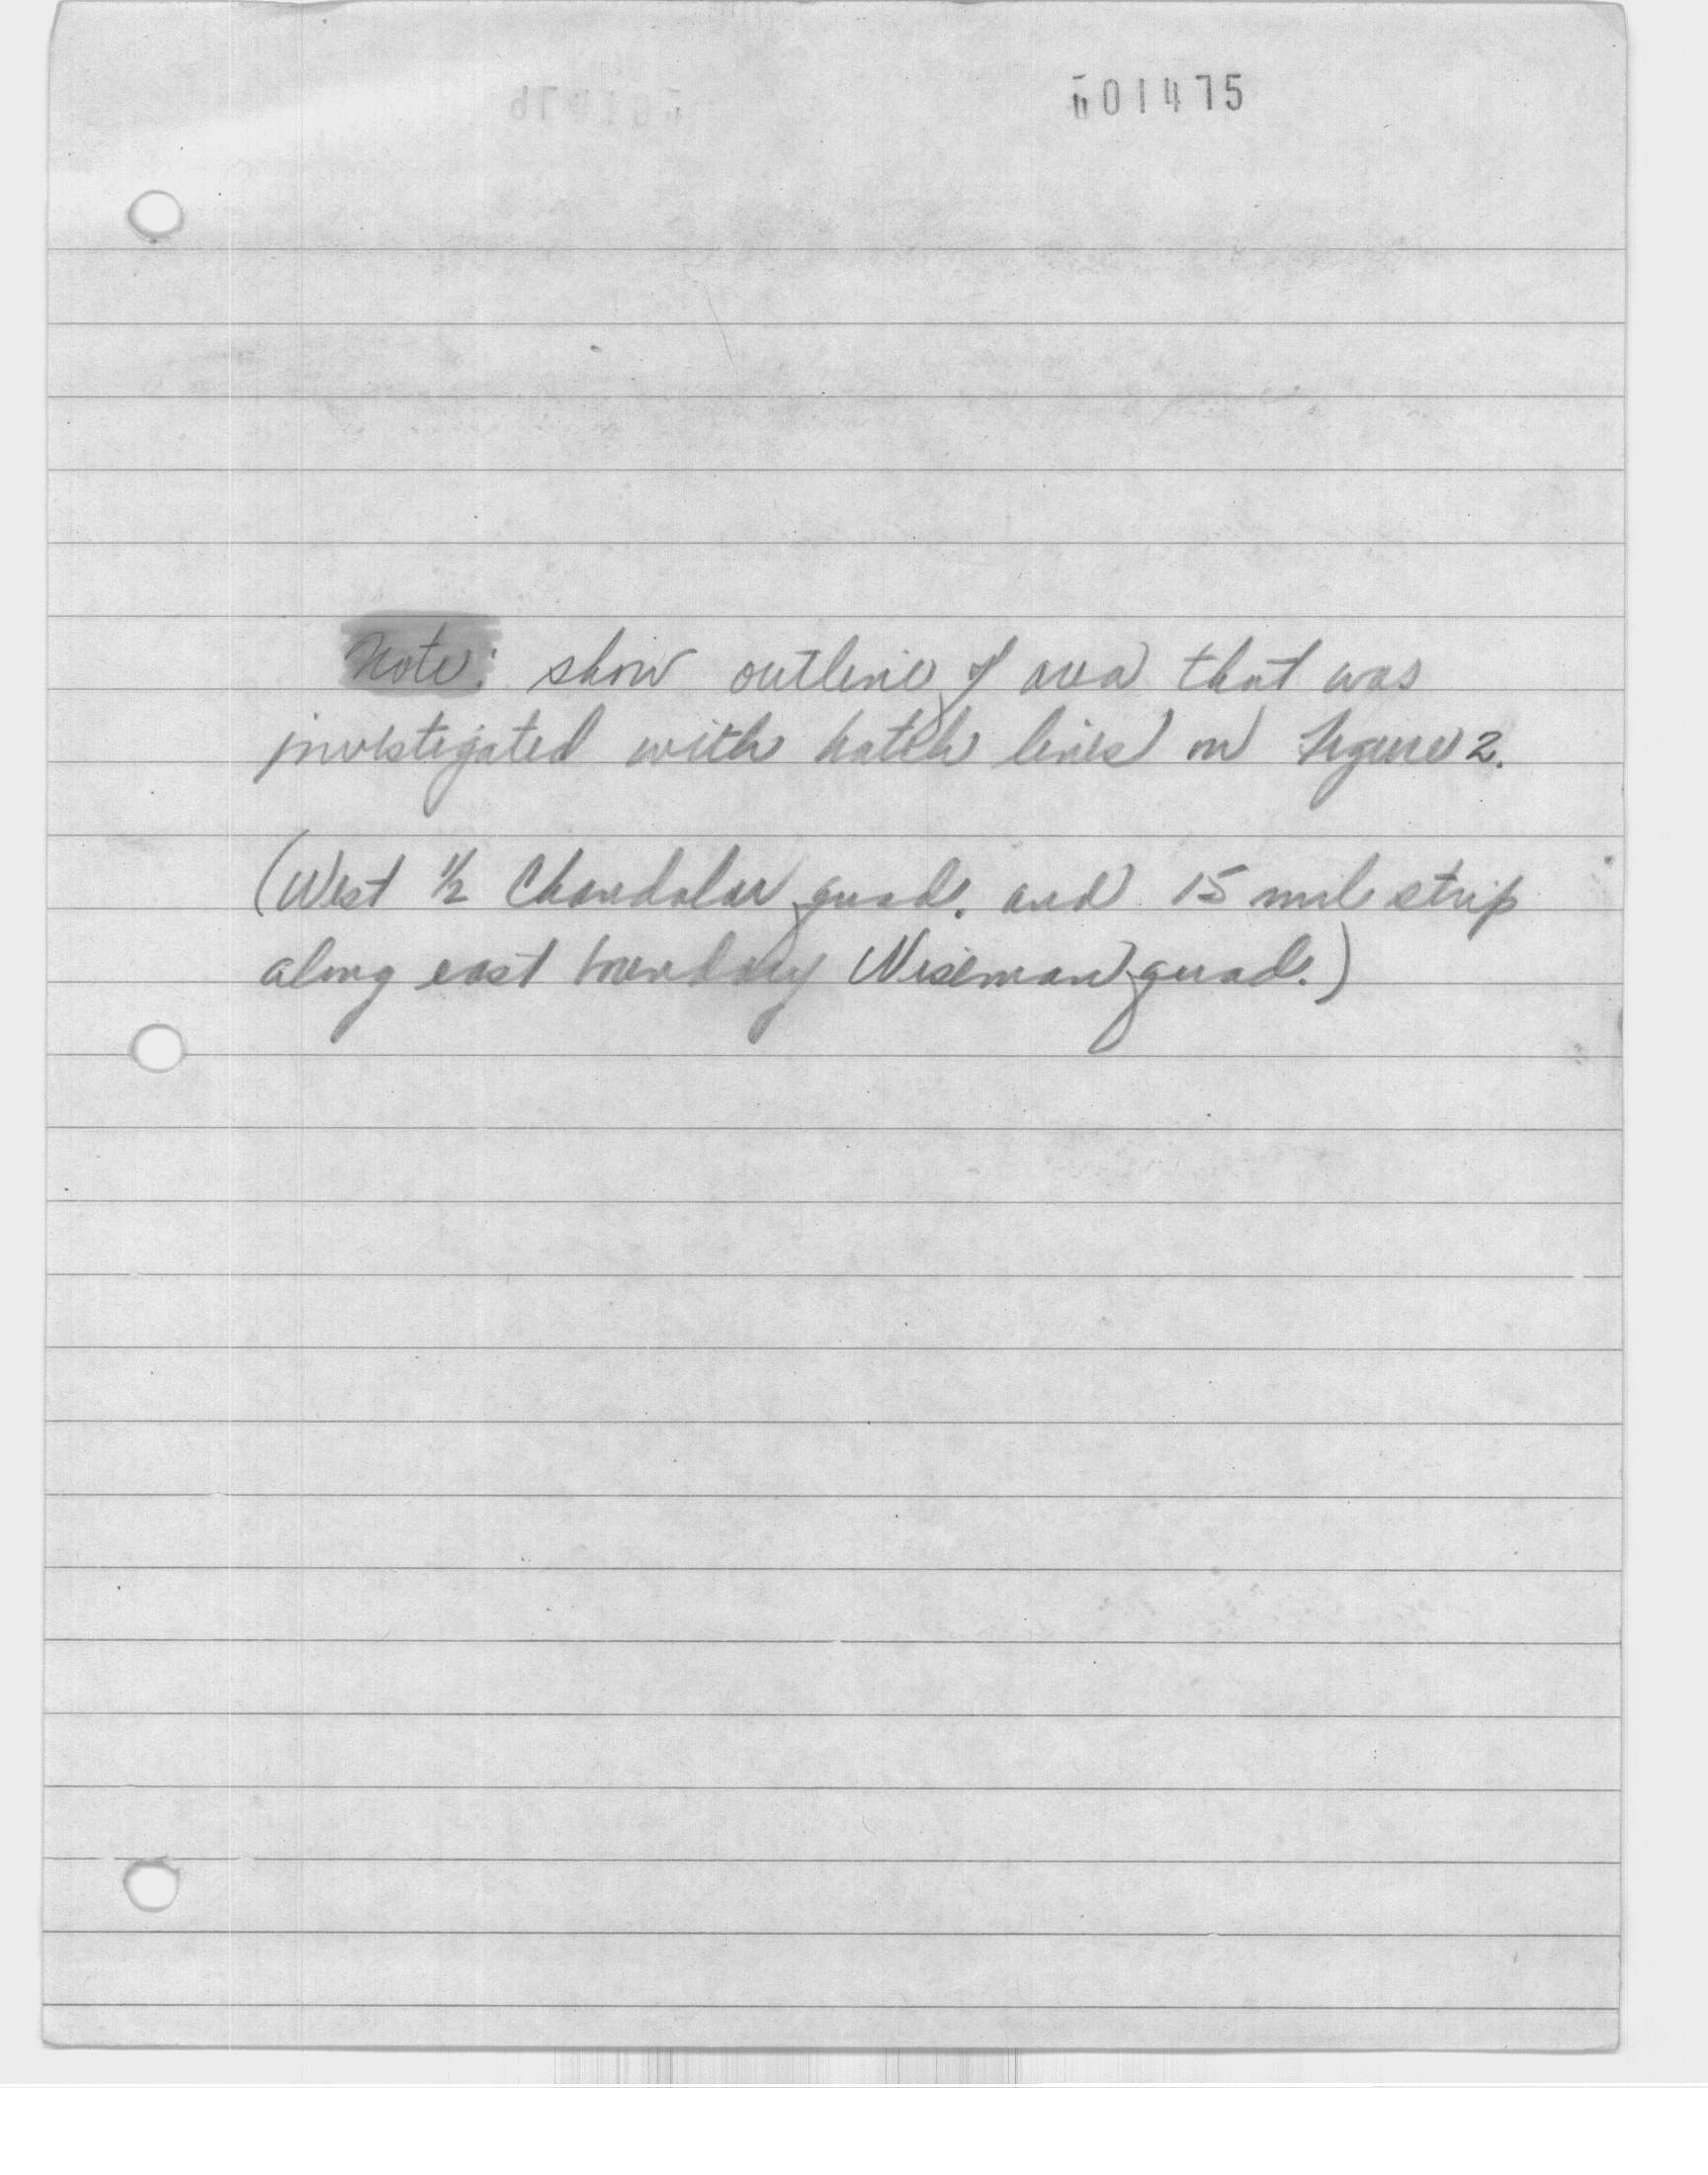 601475
Note: show outline of area that was
investigated with hatch lines on figure 2.
(West ½ Chandalar quad. and 15 mile strip
along east boundary Wiseman quad.)